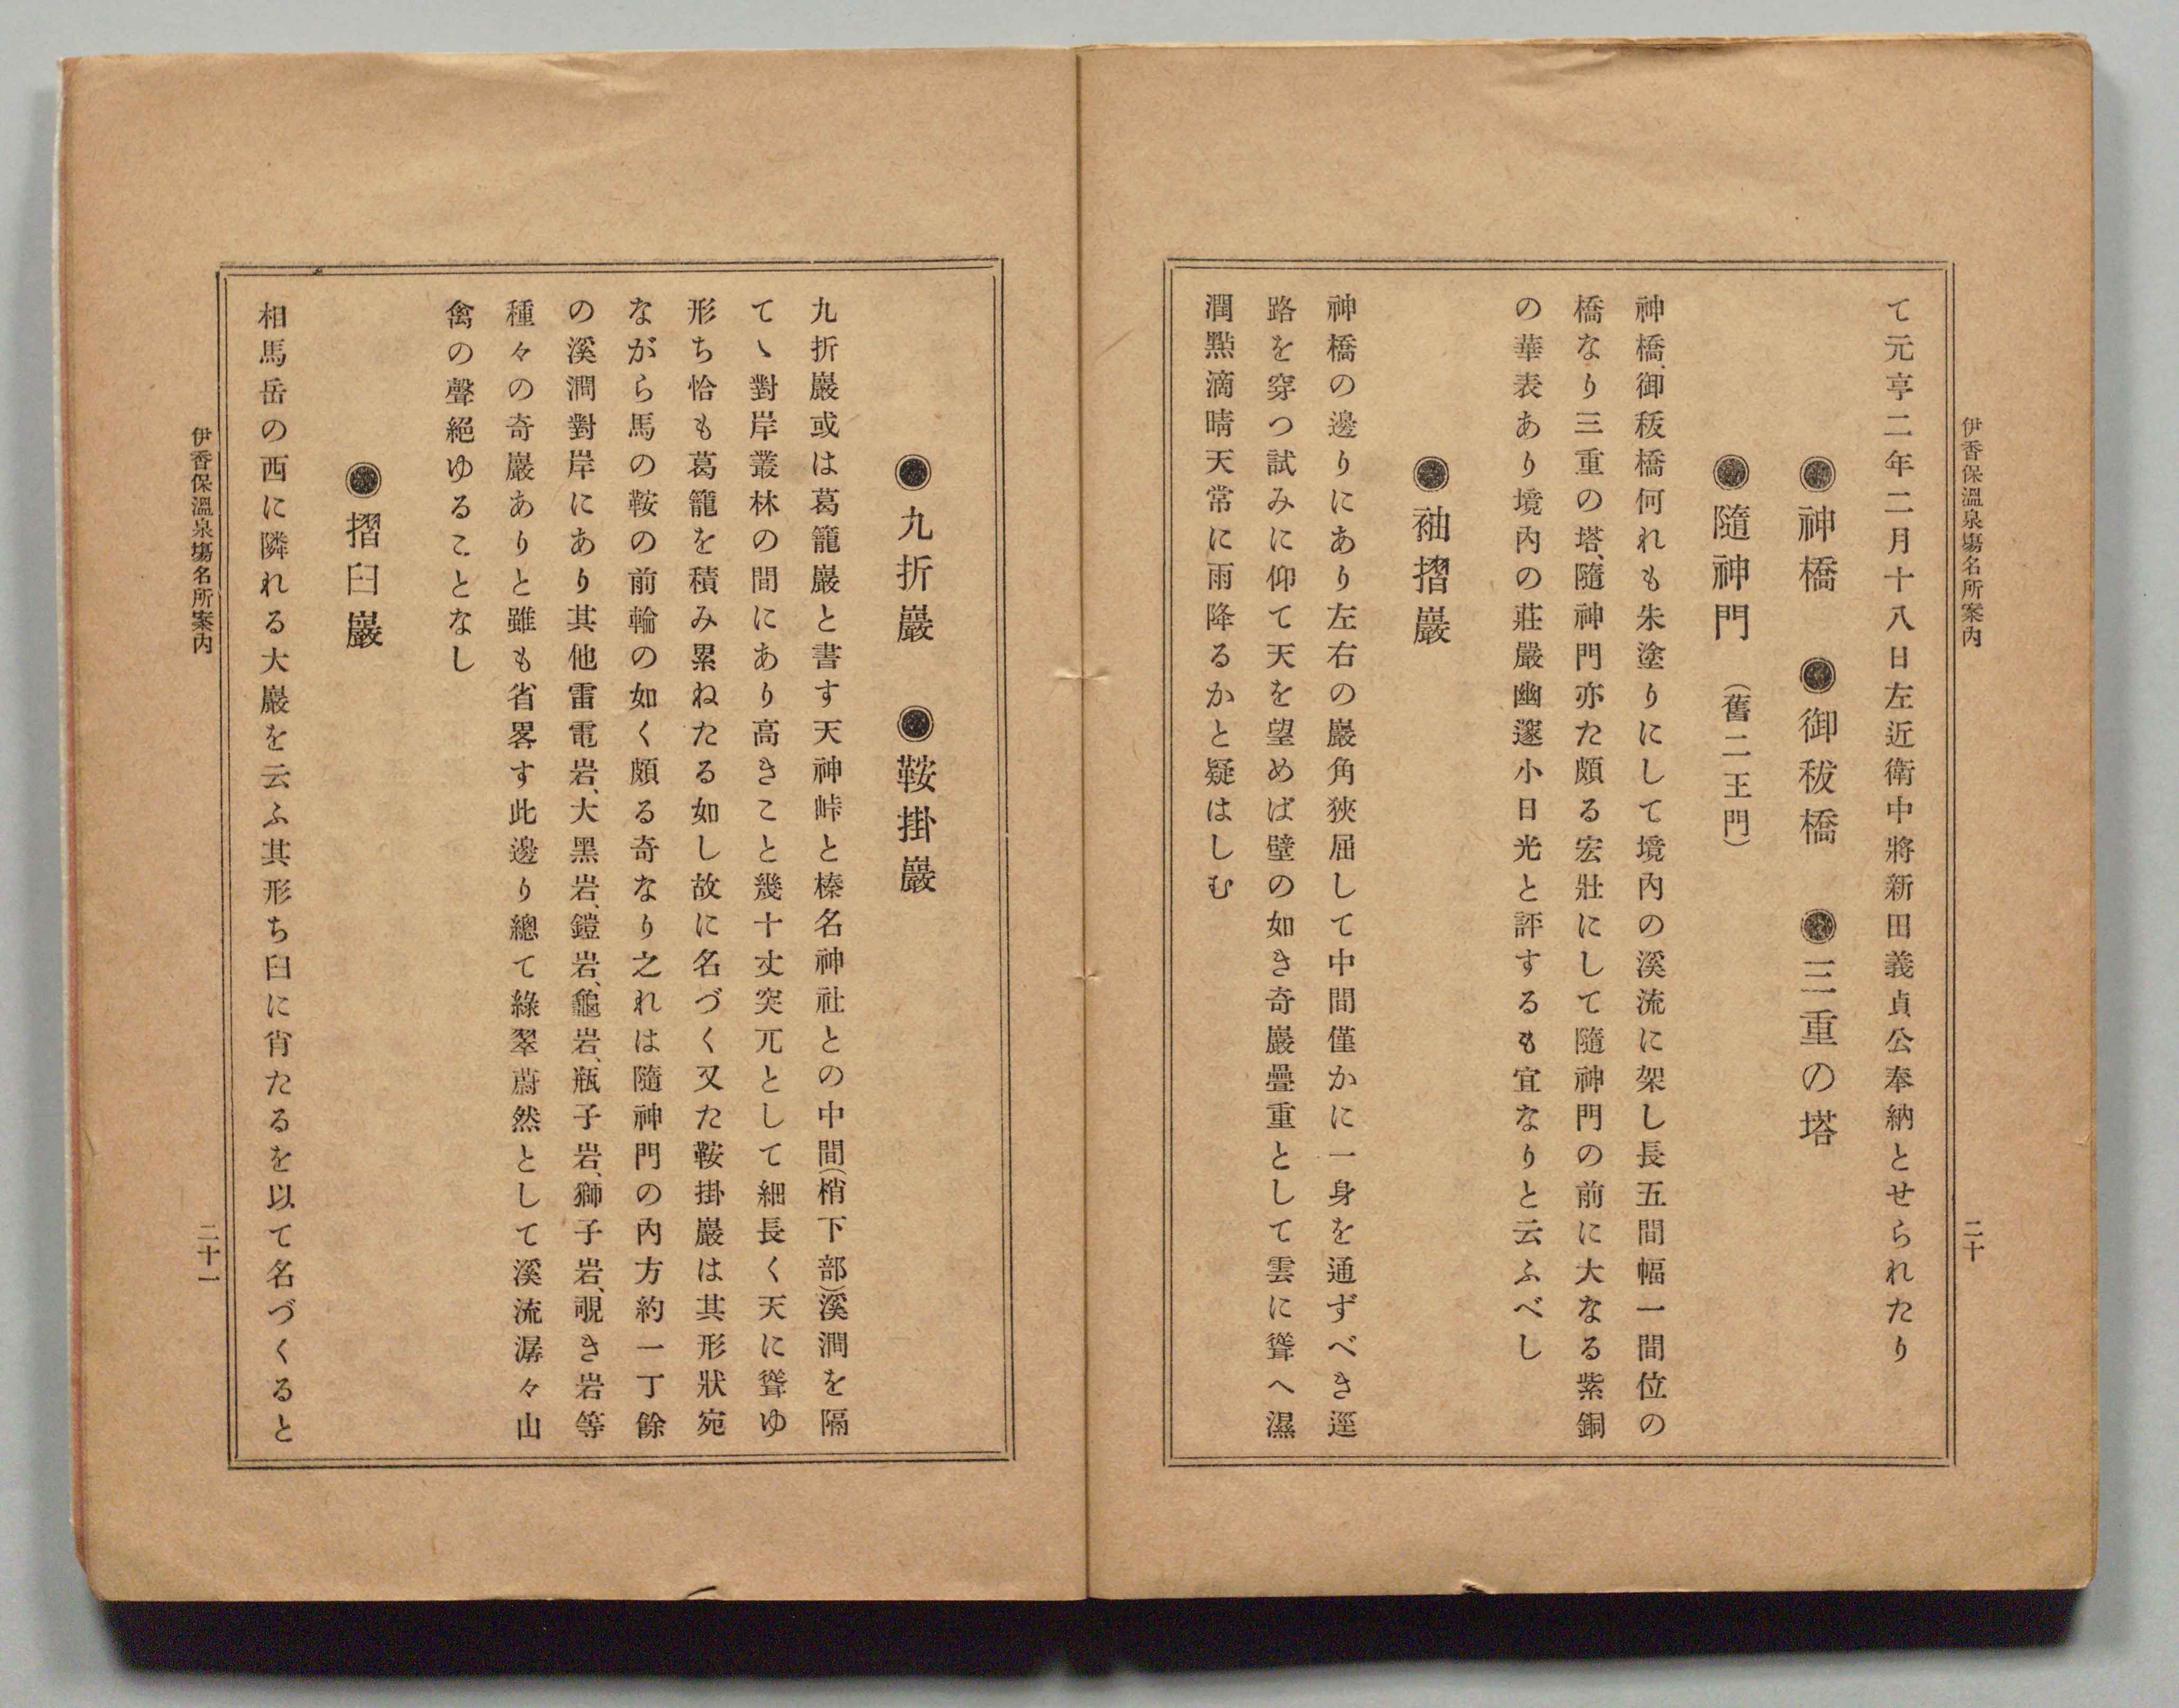 伊香保溫泉塲名所案内
二十
て元享二年二月十八日左近衛中將新田義貞公奉納とせられたり
●神橋　●御秡橋　●三重の塔
●隨神門（舊二王門）
神橋、御秡橋何れも朱塗りにして境內の溪流に架し長五間幅一間位の
橋なり三重の塔、隨神門亦た頗る宏壯にして隨神門の前に大なる紫銅
の華表あり境內の莊嚴幽邃小日光と評するも宜なりと云ふべし
●袖摺巖
神橋の邊りにあり左右の巖角狹屈して中間僅かに一身を通ずべき逕
路を穿つ試みに仰て天を望めば壁の如き奇巖疊重として雲に聳へ濕
潤點滴晴天常に雨降るかと疑はしむ
●九折巖　●鞍掛巖
九折巖或は葛籠巖と書す天神峠と榛名神社との中間（梢下部）溪澗を隔
てヽ對岸叢林の間にあり高きこと幾十丈突兀として細長く天に聳ゆ
形ち恰も葛籠を積み累ねたる如し故に名づく又た鞍掛巖は其形狀宛
ながら馬の鞍の前輪の如く頗る奇なり之れは隨神門の內方約一丁餘
の溪澗對岸にあり其他雷電岩、大黑岩、鎧岩、龜岩、瓶子岩、獅子岩、覗き岩等
種々の奇巖ありと雖も省畧す此邊り總て綠翠蔚然として溪流潺々山
禽の聲絕ゆることなし
●摺臼巖
相馬岳の西に隣れる大巖を云ふ其形ち臼に肖たるを以て名づくると
伊香保溫泉塲名所案内
二十一